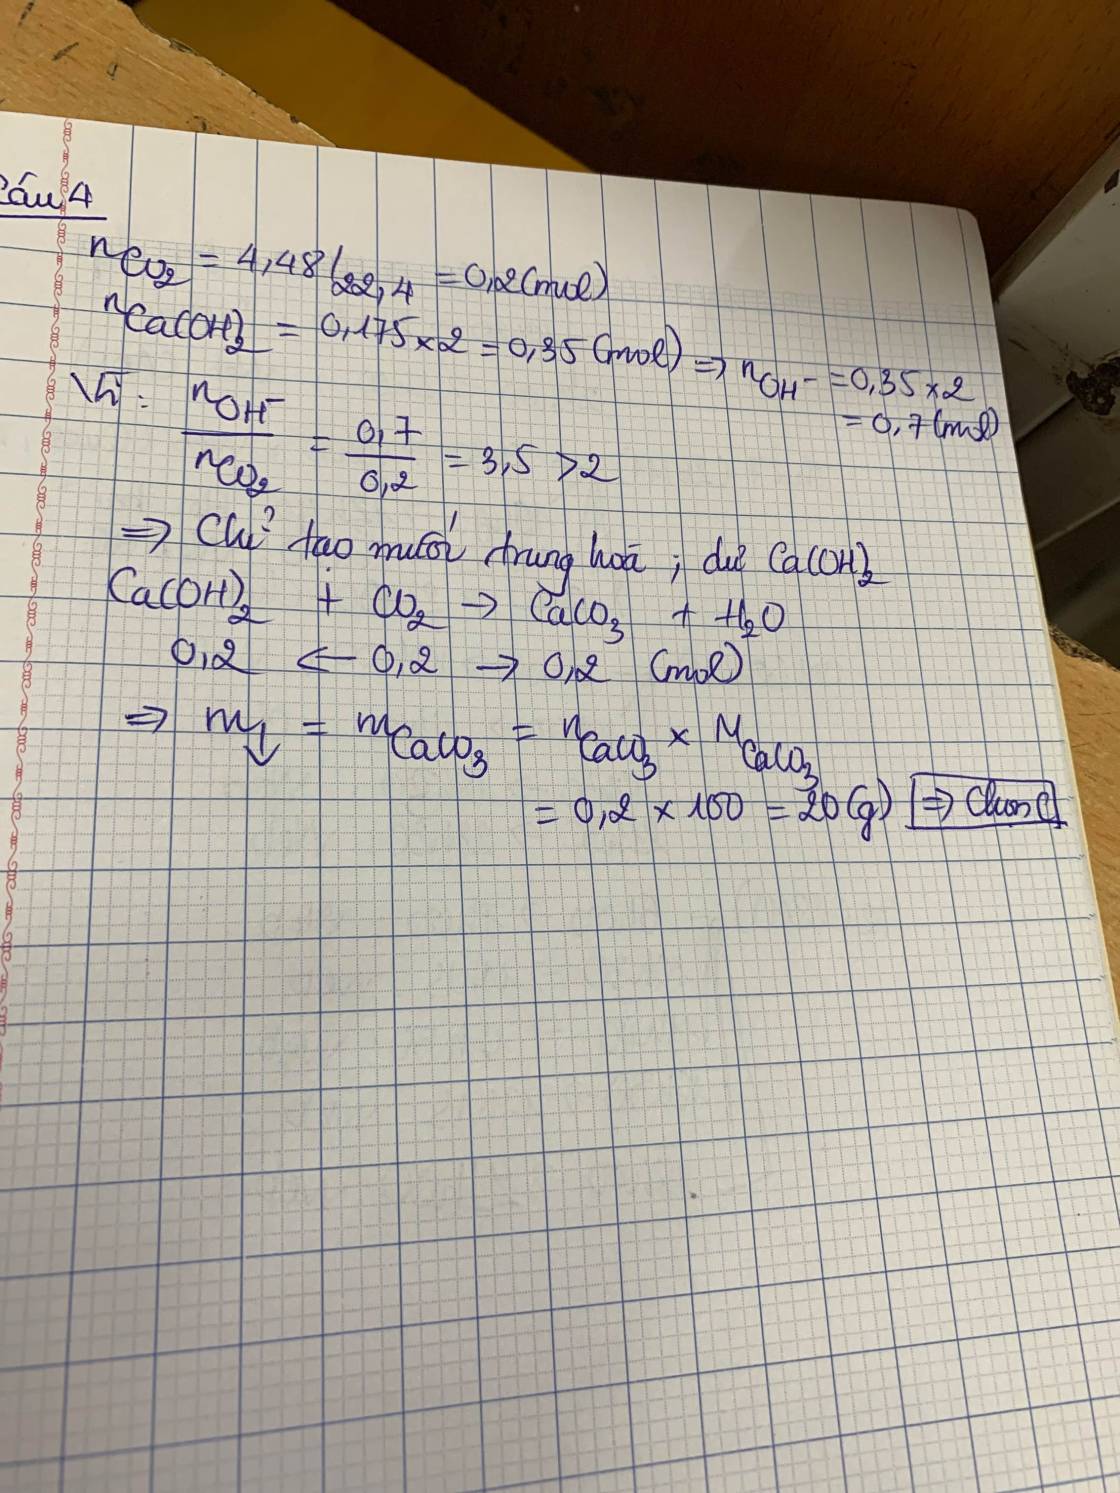 Câu 4
nCO₂ = 4,48/22,4 = 0,2 (mol)
nCa(OH)₂ = 0,175 × 2 = 0,35 (mol) ⇒ nOH⁻ = 0,35 × 2
= 0,7 (mol)
Vì: nOH⁻/nCO₂ = 0,7/0,2 = 3,5 > 2
⇒ Chỉ tạo muối trung hoà ; dư Ca(OH)₂
Ca(OH)₂ + CO₂ → CaCO₃ + H₂O
0,2 ← 0,2 → 0,2 (mol)
⇒ m↓ = mCaCO₃ = nCaCO₃ × MCaCO₃
= 0,2 × 100 = 20 (g) ⇒ Chọn C